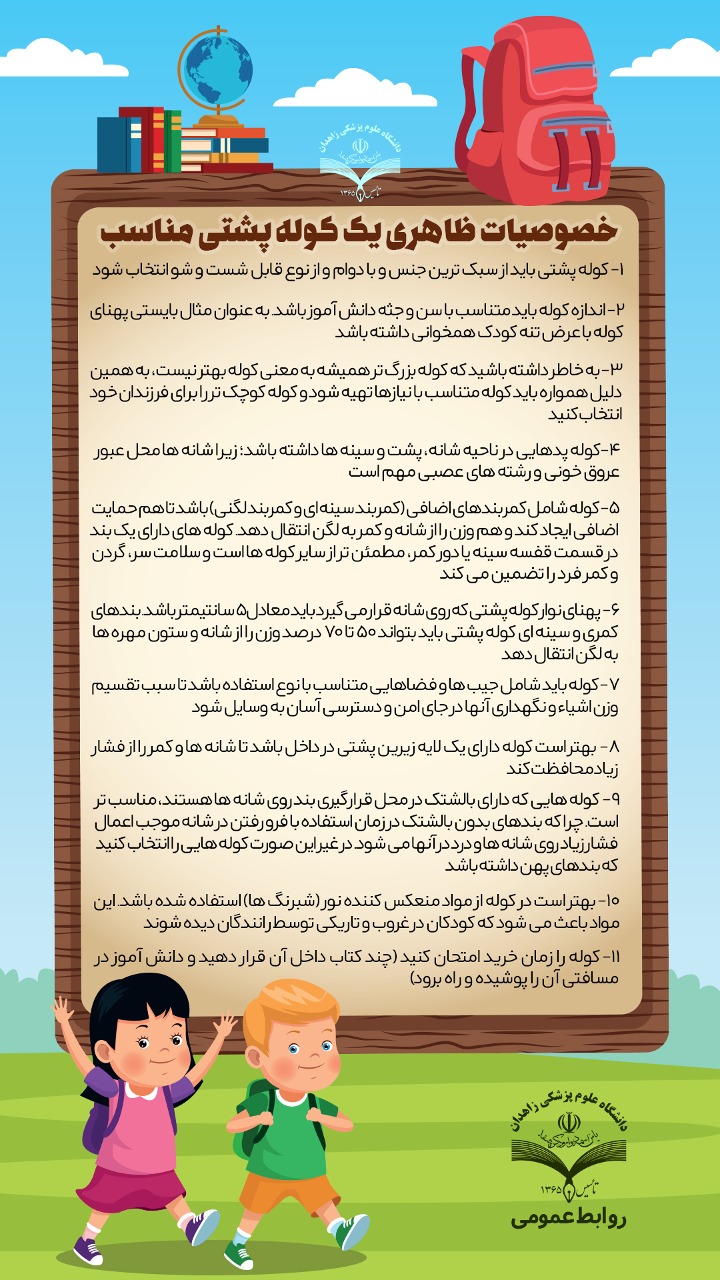 دانشگاه علوم پزشکی زاهدان
تاسیس ۱۳۶۵
خصوصیات ظاهری یک کوله پشتی مناسب
۱- کوله پشتی باید از سبک ترین جنس و با دوام و از نوع قابل شست و شو انتخاب شود
۲- اندازه کوله باید متناسب با سن و جثه دانش آموز باشد. به عنوان مثال بایستی پهنای
کوله با عرض تنه کودک همخوانی داشته باشد
۳- به خاطر داشته باشید که کوله بزرگ تر همیشه به معنی کوله بهتر نیست، به همین
دلیل همواره باید کوله متناسب با نیازها تهیه شود و کوله کوچک تر را برای فرزندان خود
انتخاب کنید
۴- کوله پدهایی در ناحیه شانه، پشت و سینه ها داشته باشد؛ زیرا شانه ها محل عبور
عروق خونی و رشته های عصبی مهم است
۵- کوله شامل کمربندهای اضافی (کمربند سینه ای و کمربند لگنی) باشد تا هم حمایت
اضافی ایجاد کند و هم وزن را از شانه و کمر به لگن انتقال دهد. کوله های دارای یک بند
در قسمت قفسه سینه یا دور کمر، مطمئن تر از سایر کوله ها است و سلامت سر، گردن
و کمر فرد را تضمین می کند
۶- پهنای نوار کوله پشتی که روی شانه قرار می گیرد باید معادل ۵ سانتیمتر باشد. بندهای
کمری و سینه ای کوله پشتی باید بتواند ۵۰ تا ۷۰ درصد وزن را از شانه و ستون مهره ها
به لگن انتقال دهد
۷- کوله باید شامل جیب ها و فضاهایی متناسب با نوع استفاده باشد تا سبب تقسیم
وزن اشیاء و نگهداری آنها در جای امن و دسترسی آسان به وسایل شود
۸- بهتر است کوله دارای یک لایه زیرین پشتی در داخل باشد تا شانه ها و کمر را از فشار
زیاد محافظت کند
۹- کوله هایی که دارای بالشتک در محل قرارگیری بند روی شانه ها هستند، مناسب تر
است. چرا که بندهای بدون بالشتک در زمان استفاده با فرو رفتن در شانه موجب اعمال
فشار زیاد روی شانه ها و درد در آنها می شود. در غیر این صورت کوله هایی را انتخاب کنید
که بندهای پهن داشته باشد
۱۰- بهتر است در کوله از مواد منعکس کننده نور (شبرنگ ها) استفاده شده باشد. این
مواد باعث می شود که کودکان در غروب و تاریکی توسط رانندگان دیده شوند
۱۱- کوله را زمان خرید امتحان کنید (چند کتاب داخل آن قرار دهید و دانش آموز در
مسافتی آن را پوشیده و راه برود)
دانشگاه علوم پزشکی زاهدان
تاسیس ۱۳۶۵
روابط عمومی